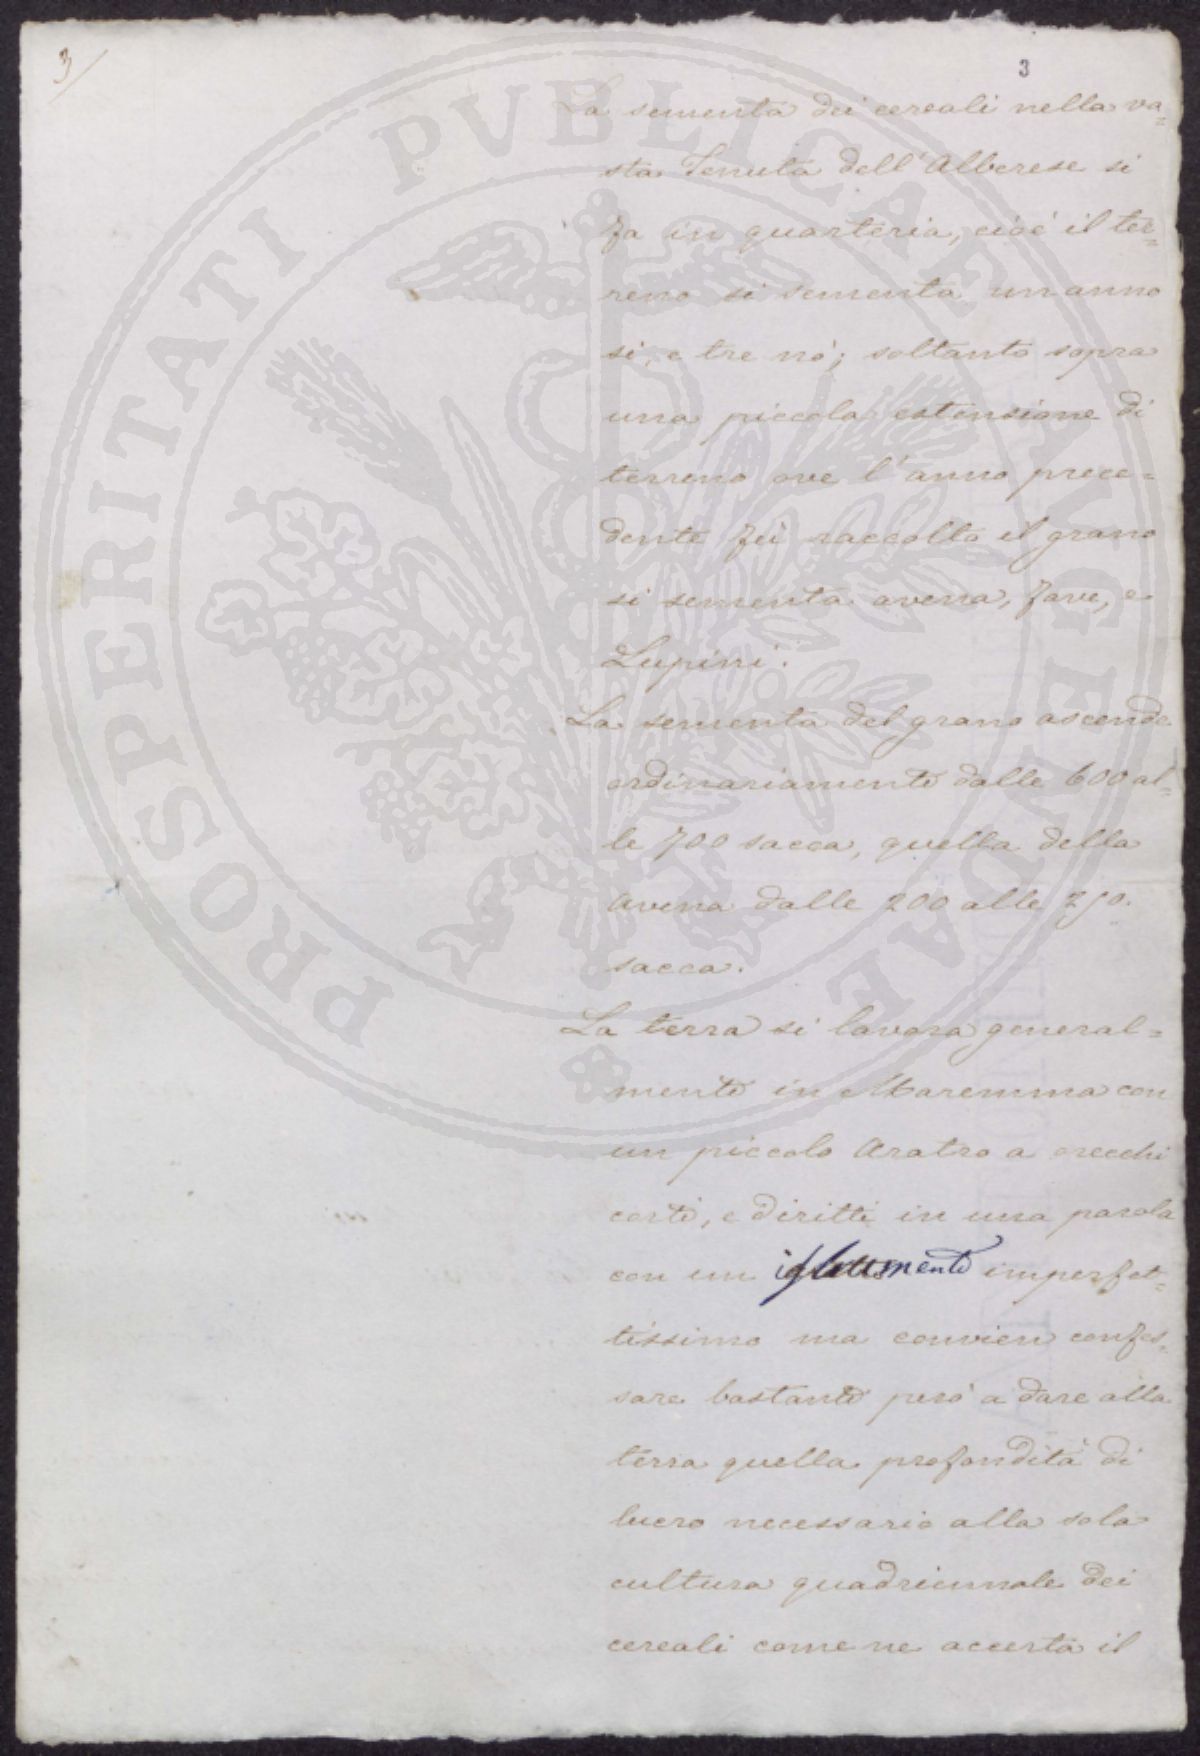 3/
3
La sementa dei cereali nella va=
sta Tenuta dell'Alberese si
fa in quarteria, cioè il ter=
reno si sementa un anno
si, e tre nò; soltanto sopra
una piccola estensione di
terreno ove l'anno prece=
dente fù raccolto il grano
si sementa avena, fave, e
Lupini.
La sementa del grano ascende
ordinariamente dalle 600 al=
le 700 sacca, quella della
avena dalle 200 alle 250.
sacca.
La terra si lavora general=
mente in Maremma con
un piccolo aratro a orecchi
corti, e diritti in una parola
con un imperfet=
tissimo ma convien confes=
sare bastante però a dare alla
terra quella profondità di
lucro necessario alla sola
cultura quadriennale dei
cereali come ne accerta il
PROSPERITATI PVBLICAE AVGENDAE